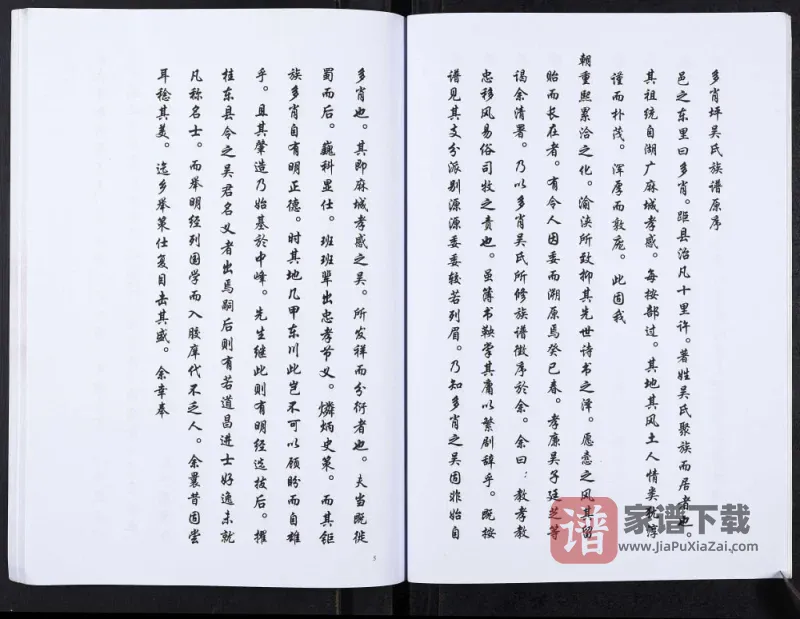 多肖坪吴氏族谱原序
邑之东里曰多肖。距县治凡十里许。著姓吴氏聚族而居者也。
其祖统自湖广麻城孝感。每按部过。其地其风土人情类
谨而朴茂。浑厚而敦庞。此固我
朝重熙累洽之化。沦浃所致抑其先世诗书之泽。愿悫之风其留
贻而长在者。有令人因委而溯原焉癸巳春。孝廉吴子廷芝等
谒余清署。乃以多肖吴氏所修族谱徵序於余。余曰：教孝教
忠移风易俗司牧之责也。虽簿书鞅掌其庸以繁剧辞乎。既按
谱见其支分派别源源委委较若列眉。乃知多肖之吴固非始自
多肖也。其即麻城孝感之吴。所发祥而分衍者也。夫当既徙
蜀而后。巍科显仕。班班辈出忠孝节义。燐炳史策。而其钜
族多肖自有明正德。时其地几甲东川此岂不可以顾盼而自雄
乎。且其肇造乃始基於中峰。先生继此则有明经选拔后。擢
桂东县令之吴君名义者出焉嗣后则有若道昌进士好逸未就
凡称名士。而举明经列国学而入胶庠代不乏人。余曩昔固尝
耳稔其美。迄乡举策仕复目击其盛。余幸奉
5
谱
家谱下载
www.jiaPuXiaZai.com